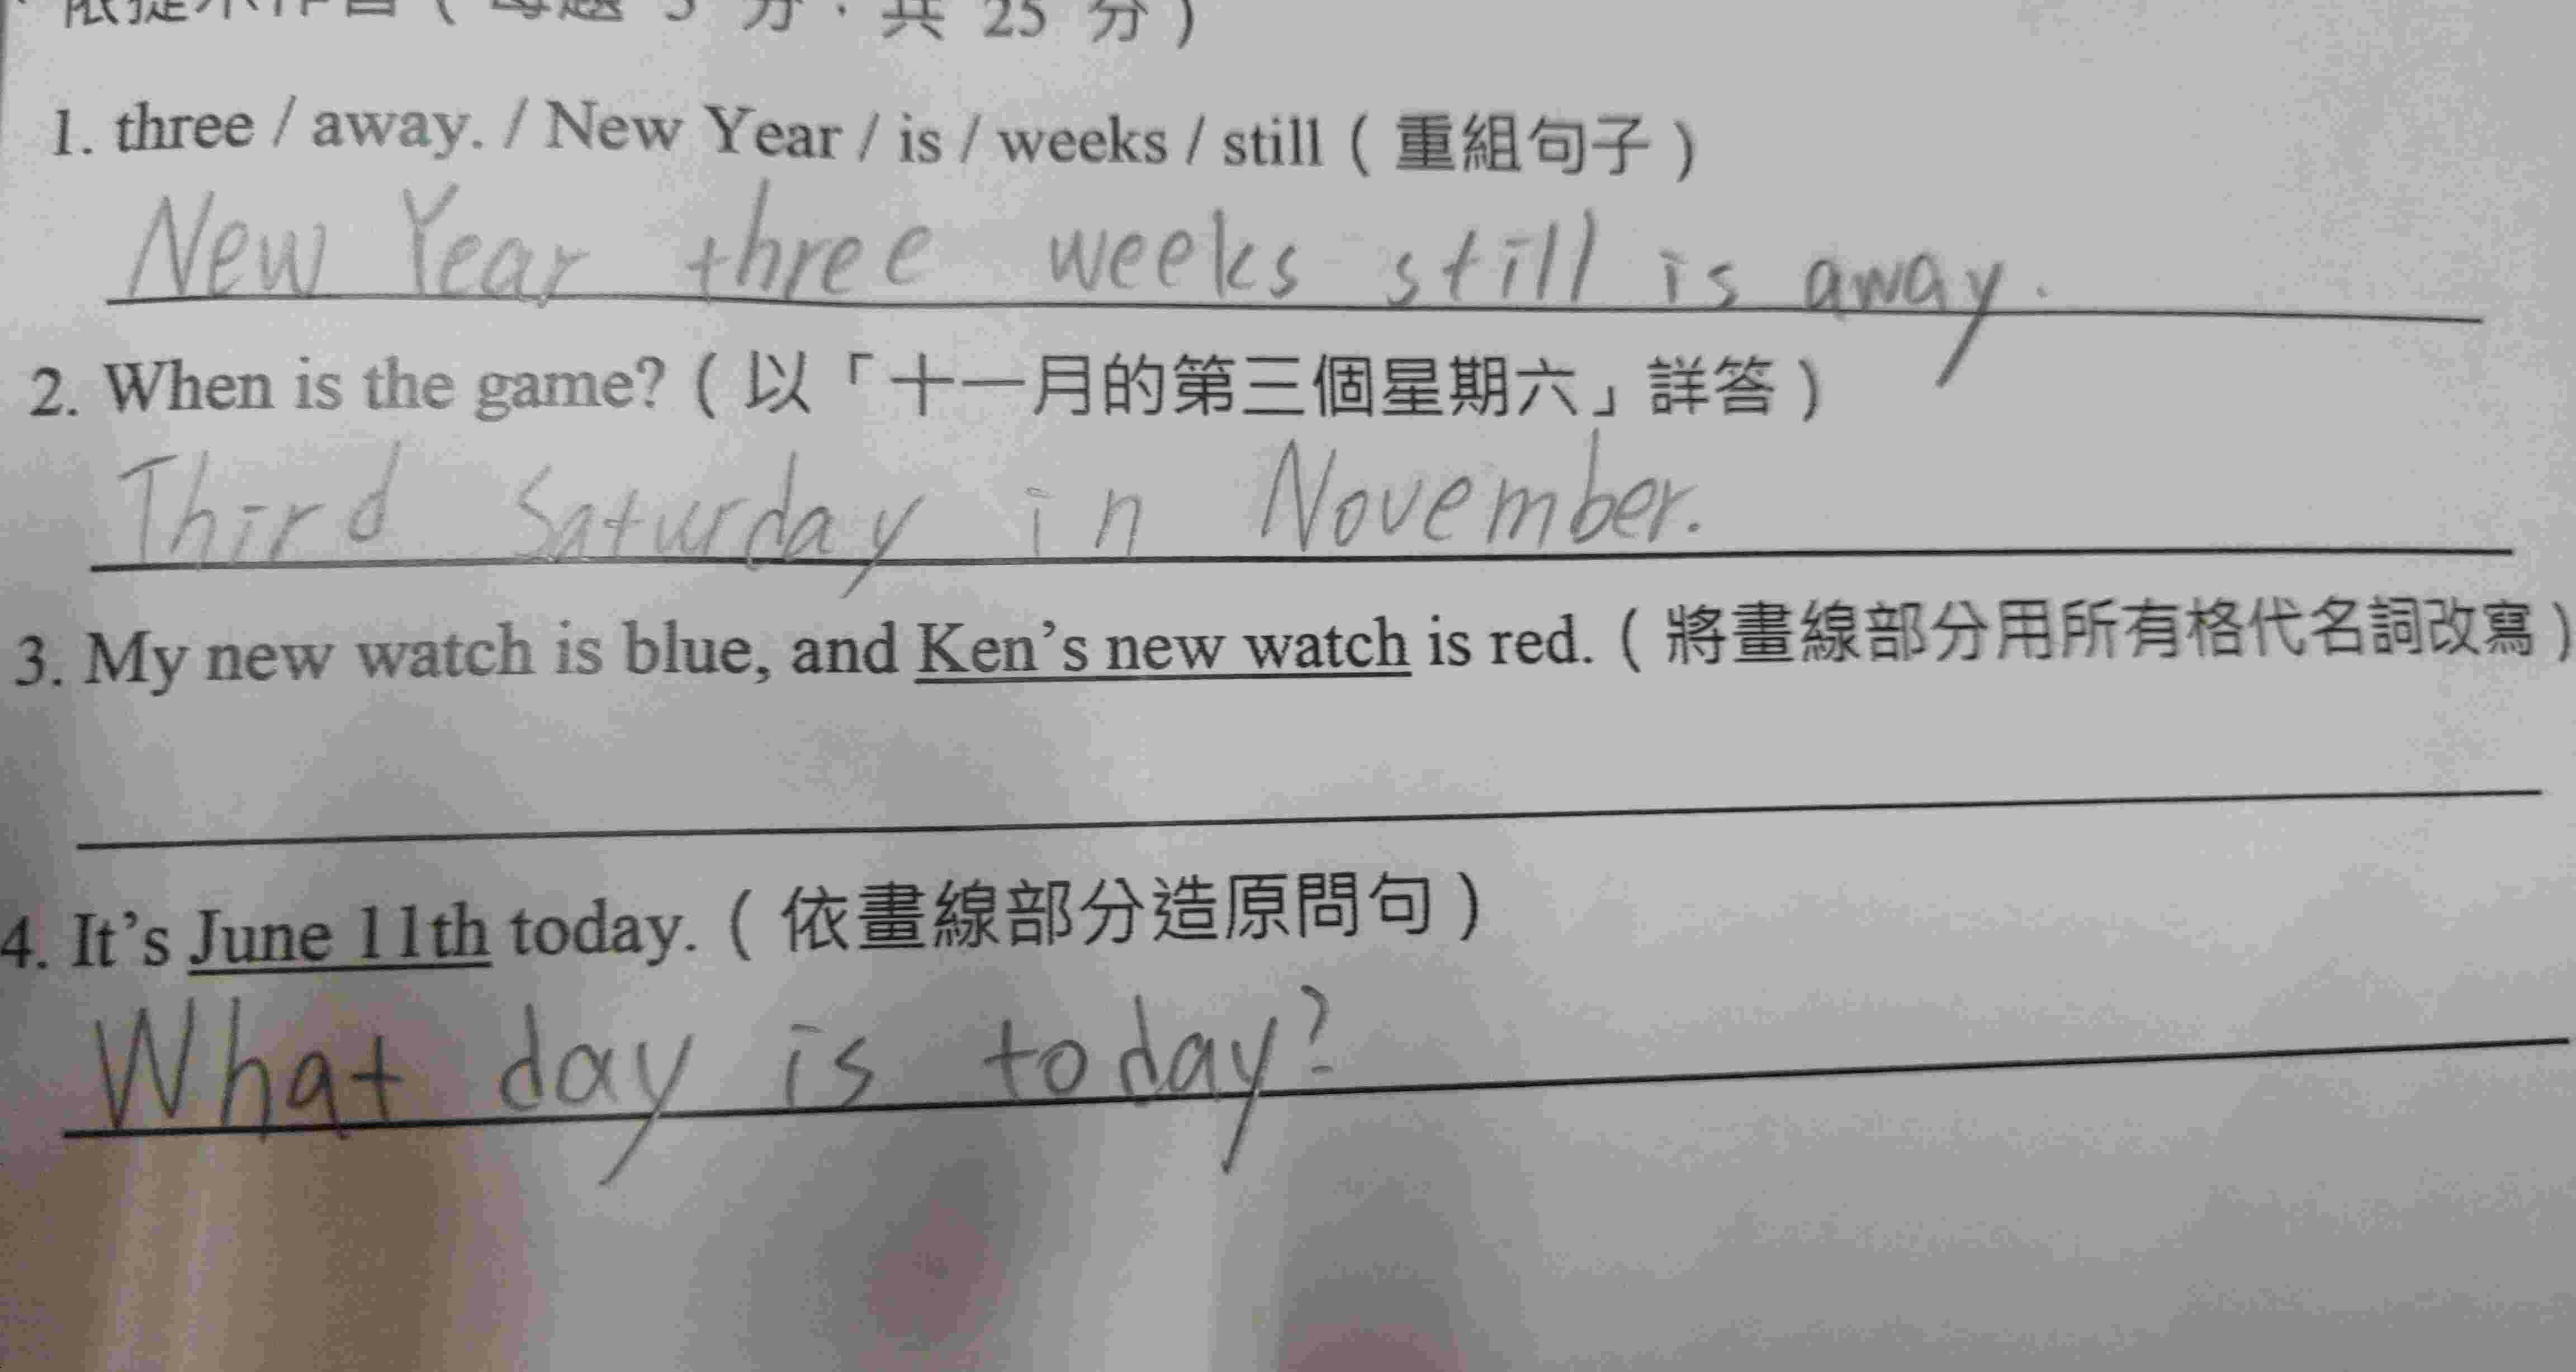 依提示作答（每題 5 分，共 25 分）
1. three / away. / New Year / is / weeks / still（重組句子）
New Year three weeks still is away.
2. When is the game?（以「十一月的第三個星期六」詳答）
Third Saturday in November.
3. My new watch is blue, and Ken's new watch is red.（將畫線部分用所有格代名詞改寫）
4. It's June 11th today.（依畫線部分造原問句）
What day is today?